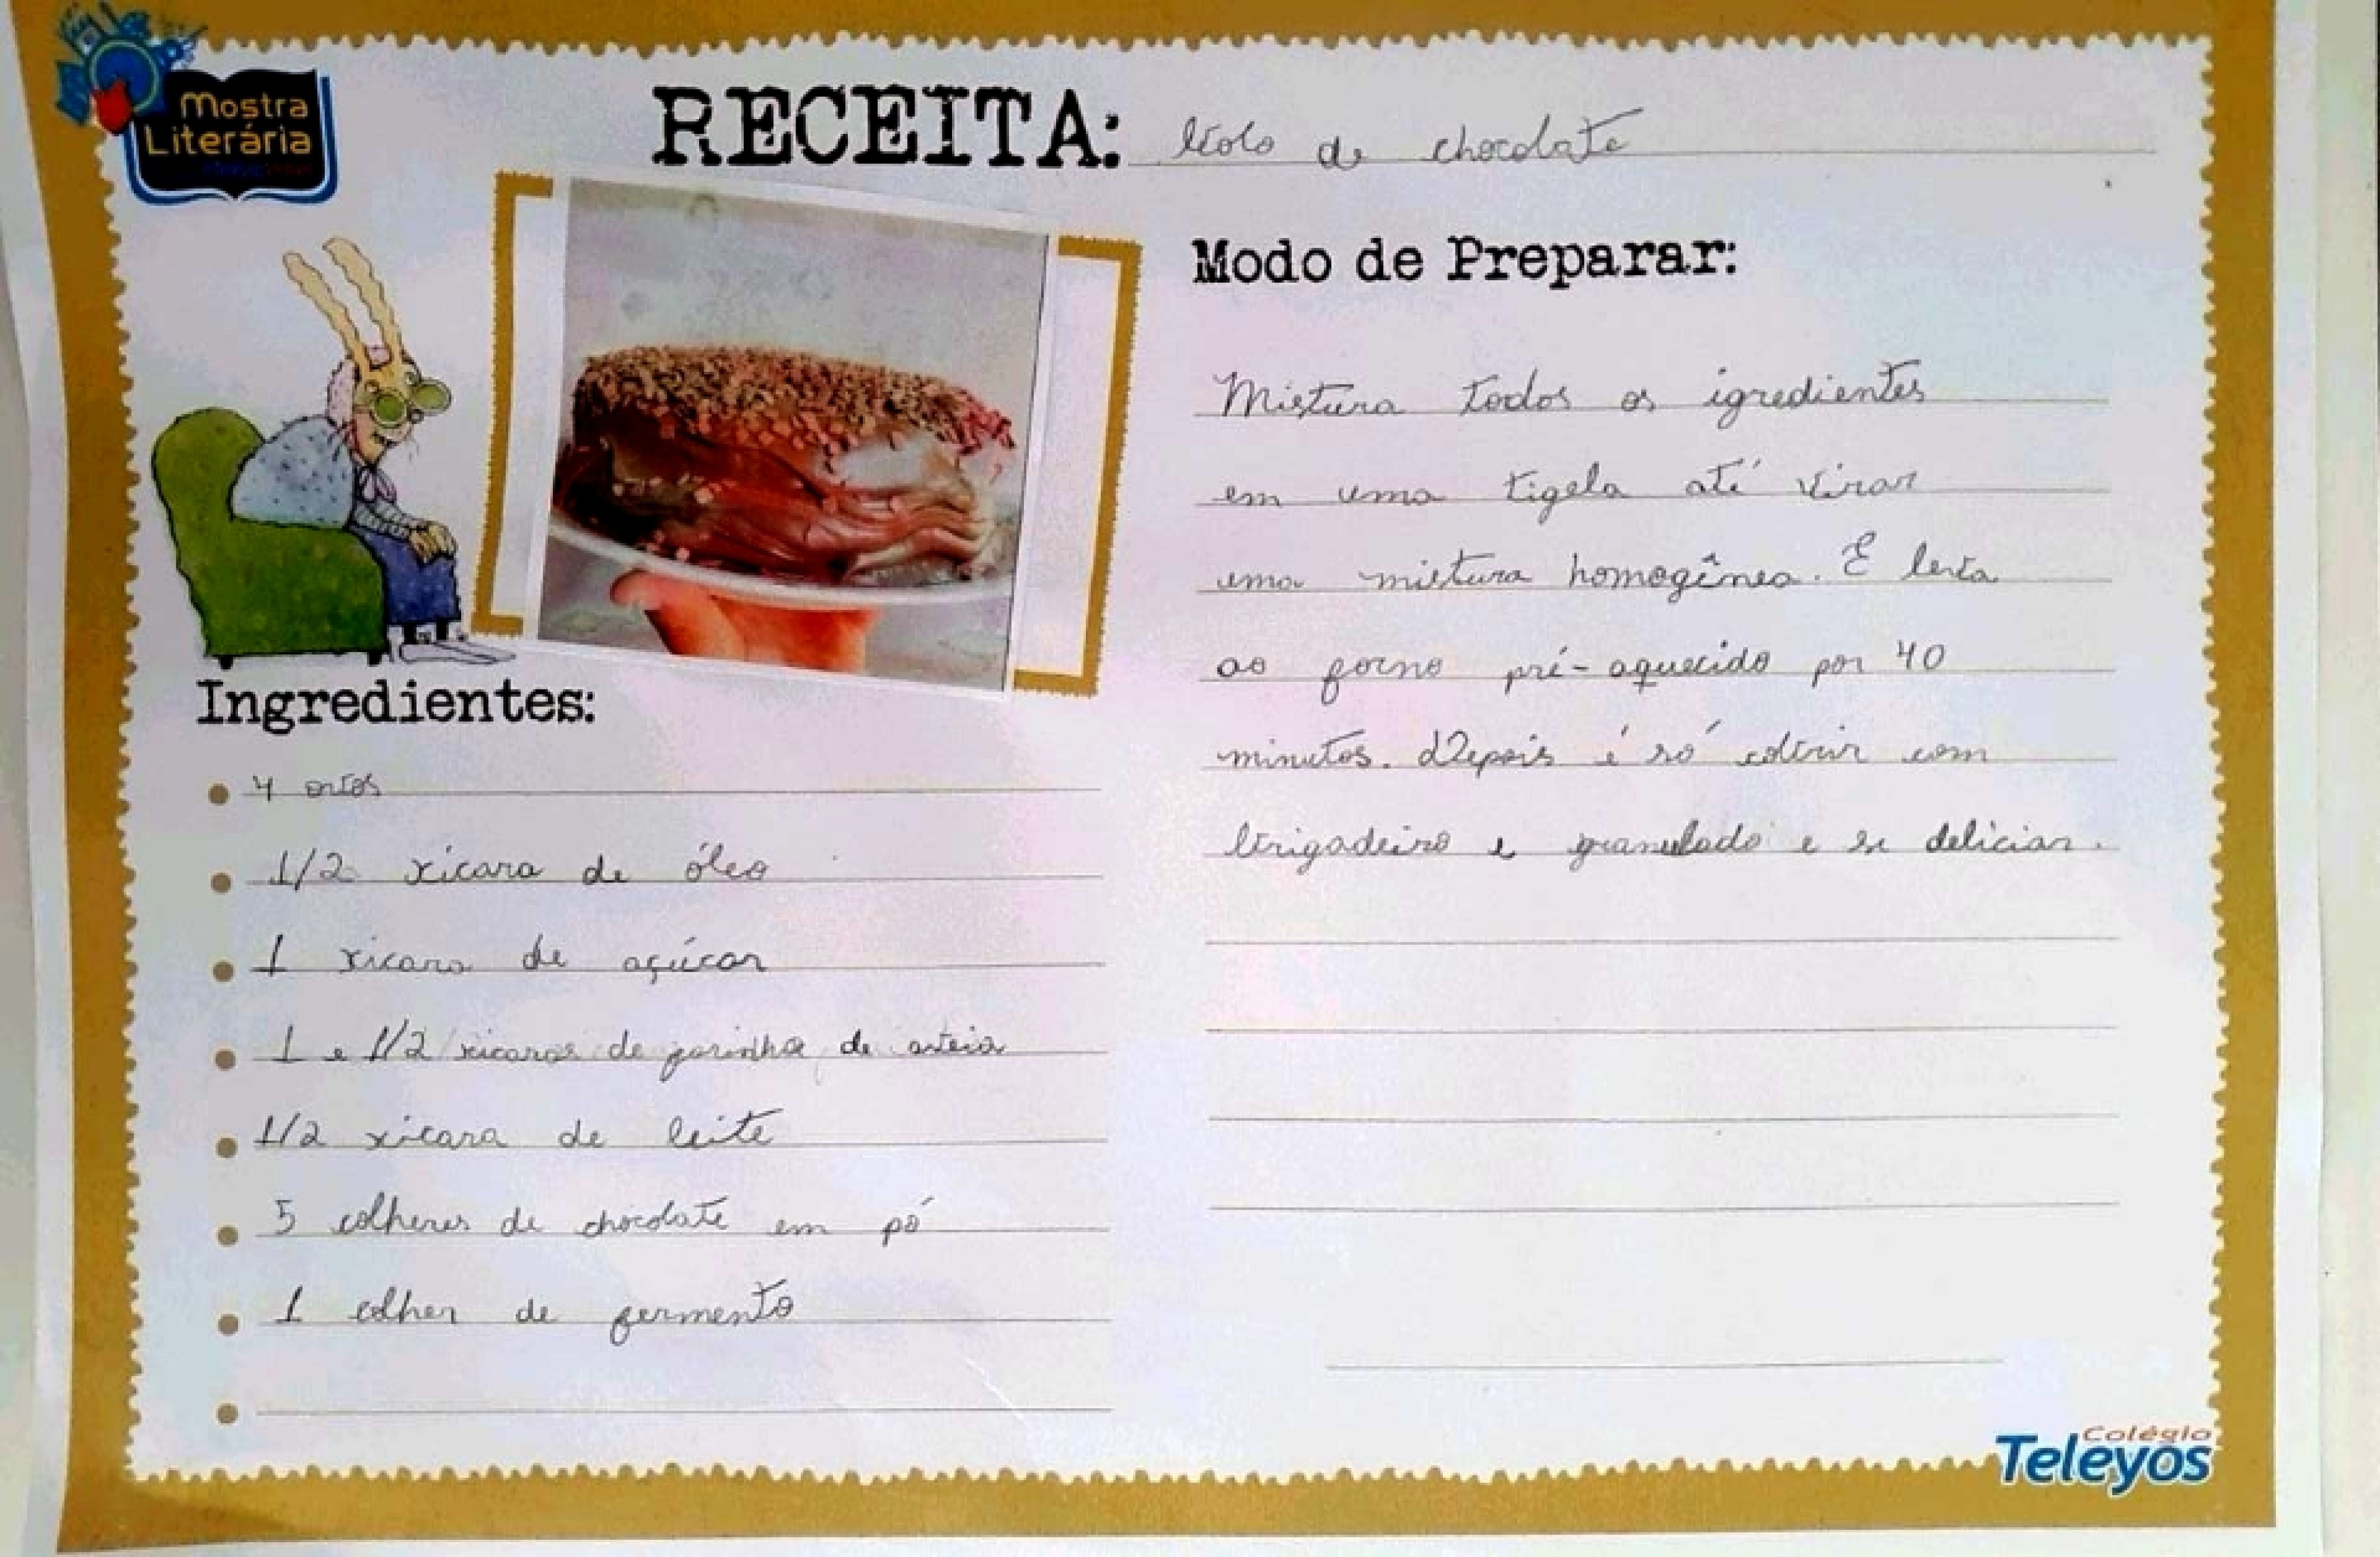 Mostra
Literária
RECEITA: bolo de chocolate
Modo de Preparar:
Mistura todos os igredientes
em uma tigela até virar
uma mistura homogênea. E leva
ao forno pré-aquecido por 40
minutos. Depois é só cobrir com
brigadeiro e granulado e se deliciar.
Ingredientes:
4 ovos
1/2 xícara de óleo
1 xicara de açúcar
1 e 1/2 xicaras de farinha de aveia
1/2 xicara de leite
5 colheres de chocolate em pó
1 colher de fermento
Colégio
Teleyos